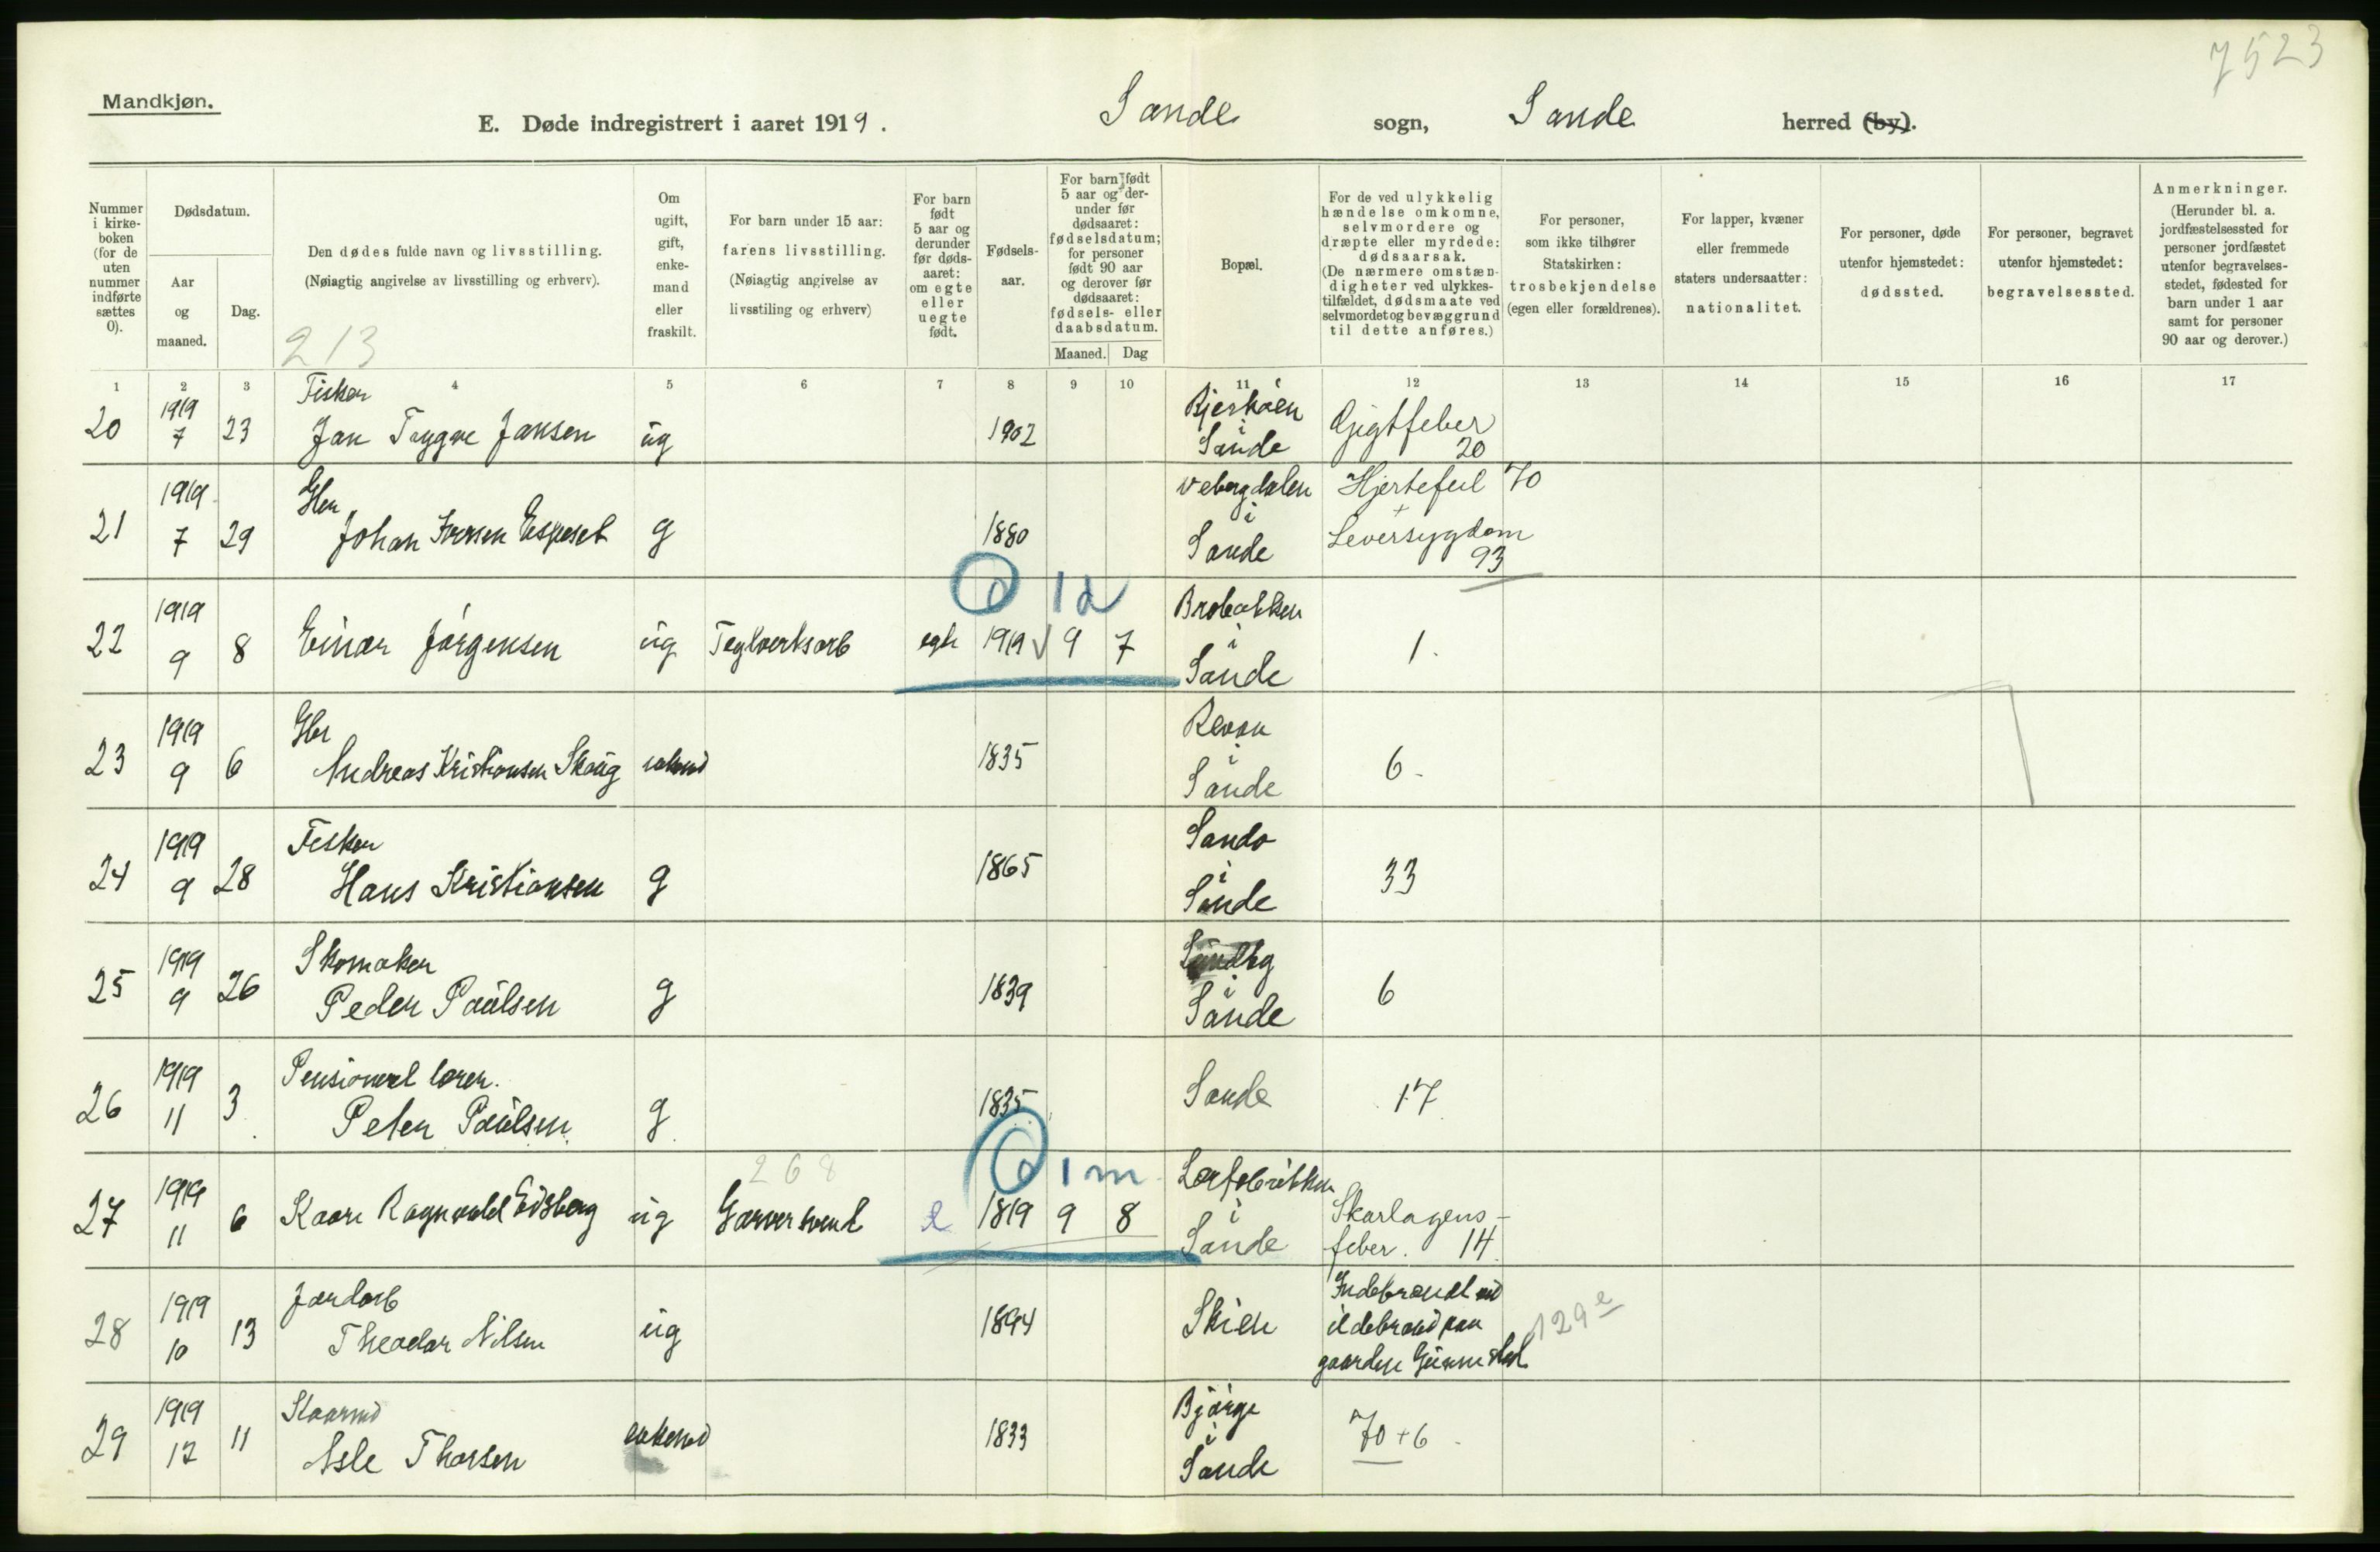 7523
Mandkjøn.
E. Døde indregistrert i aaret 1919. Sande sogn, Sande herred (by).
Nummer i kirke-boken (for de uten nummer indførte sættes 0).
Dødsdatum.
Aar og maaned.
Dag.
Den dødes fulde navn og livsstilling.
(Nøiagtig angivelse av livsstilling og erhverv).
213
Om ugift, gift, enke-mand eller fraskilt.
For barn under 15 aar:
farens livsstilling.
(Nøiagtig angivelse av livsstiling og erhverv)
For barn født 5 aar og derunder før døds-aaret: om egte eller uegte født.
Fødsels-aar.
For barn født 5 aar og der-under før dødsaaret: fødselsdatum; for personer født 90 aar og derover før dødsaaret: fødsels- eller daabsdatum.
Maaned. Dag
Bopæl.
For de ved ulykkelig hændelse omkomne, selvmordere og dræpte eller myrdede: dødsaarsak.
(De nærmere omstæn-digheter ved ulykkes-tilfældet, dødsmaate ved selvmordet og bevæggrund til dette anføres.)
For personer, som ikke tilhører Statskirken: trosbekjendelse (egen eller forældrenes).
For lapper, kvæner eller fremmede staters undersaatter: nationalitet.
For personer, døde utenfor hjemstedet: dødssted.
For personer, begravet utenfor hjemstedet: begravelsessted.
Anmerkninger.
(Herunder bl. a. jordfæstelsessted for personer jordfæstet utenfor begravelses-stedet, fødested for barn under 1 aar samt for personer 90 aar og derover.)
1 2 3 4 5 6 7 8 9 10 11 12 13 14 15 16 17
20 1919 7 23 Fisker
Jan Trygve Jansen ug 1902
i Sande Gigtfeber 20
21 1919 7 29 Gbr
Johan Espeset g 1880
i Sande Hjertefeil 70
+
Leversygdom 93
1 d
22 1919 9 8 Einar Jörgensen ug Teglverksarb egte 1919 9 7
Brobakken i Sande 1.
23 1919 9 6 Gbr
Andreas Kristiansen Skoug 1835
Revaa i Sande 6
24 1919 9 28 Fisker
Hans Kristiansen g 1865
Sando i Sande 33
25 1919 9 26 Skomaker
Peder Paulsen g 1839
i Sande 6
26 1919 11 3 Pensionert lærer.
Peter Paulsen g 1835
Sande 17
268
1 m
27 1919 11 6 Kaare Ragnvald Edsberg ug Garversvend e 1819 9 8
Lærfabrikken i Sande Skarlagens-
feber. 14.
28 1919 10 13 Jordarb
Theodor Nilsen ug 1894
Skien Indebrændt ved
ildebrand paa
gaarden 129 e
29 1919 12 11 Kaarmd
Asle Thorsen enkemd 1833
Bjørge i Sande 70 + 6